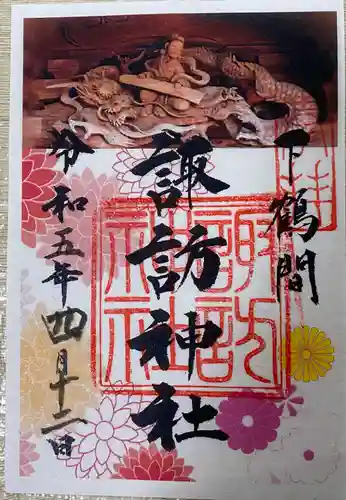 下鶴間
諏訪神社
令和五年四月十二日
諏訪
神社